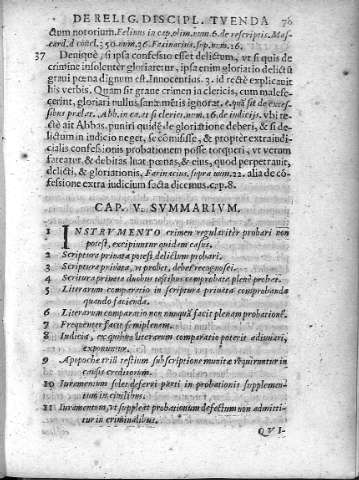 DE RELIG. DISCIPL. TVENDA 76
ctum notorium. Felinus in cap. olim. num. 6. de rescriptis. Mas-
card. d. concl. 350. num. 26. Farinacius, sup. num. 16.
37 Denique, si ipsa confessio esset delictum, vt si quis de
crimine insolenter gloriaretur, ipsa enim gloriatio delictū
graui pœna dignum est. Innocentius. 3. id rectè explicauit
his verbis. Quam sit graue crimen in clericis, cum malefe-
cerint, gloriari nullus sanæ mētis ignorat. c. quā sit de exces-
sibus prælat. Abb. in ca. at si clerici. num. 26. de iudicijs. vbi re-
ctè ait Abbas. puniri quidē de gloriatione deberi, & si de-
lictum in indicio neget, se cōmisisse, & propter extraiudi-
cialis confessionis probationem posse torqueri, vt verum
fateatur. & debitas luat pœnas, & eius, quod perpetrauit,
delicti, & gloriationis, Farinacius, supra num. 22. alia de cō-
fessione extra iudicium facta dicemus. cap. 8.
CAP. V. SVMMARIVM.
1 INSTRVMENTO crimen regulariter probari non
potest, excipiuntur quidem casus.
2 Scriptura priuata potest delictum probari.
3 Scriptura priuata, vt probet, debet recognosci.
4 Scriptura priuata duobus testibus comprobata plenè probat.
5 Literarum comparatio in scriptura priuata comprobanda
quando facienda.
6 Literarum comparatio non nunquā facit plenam probationē.
7 Frequenter facit semiplenam.
8 Indicia, ex quibus literarum comparatio poterit adiuuari,
exponuntur.
9 Apochæ triū testium subscriptione munitæ requiruntur in
causis creditorum.
10 Iuramentum solet deferri parti in probationis supplemen-
tum in ciuilibus.
11 Iuramentum, vt suppleat probationum defectum non admitti-
tur in criminalibus.
QVI-